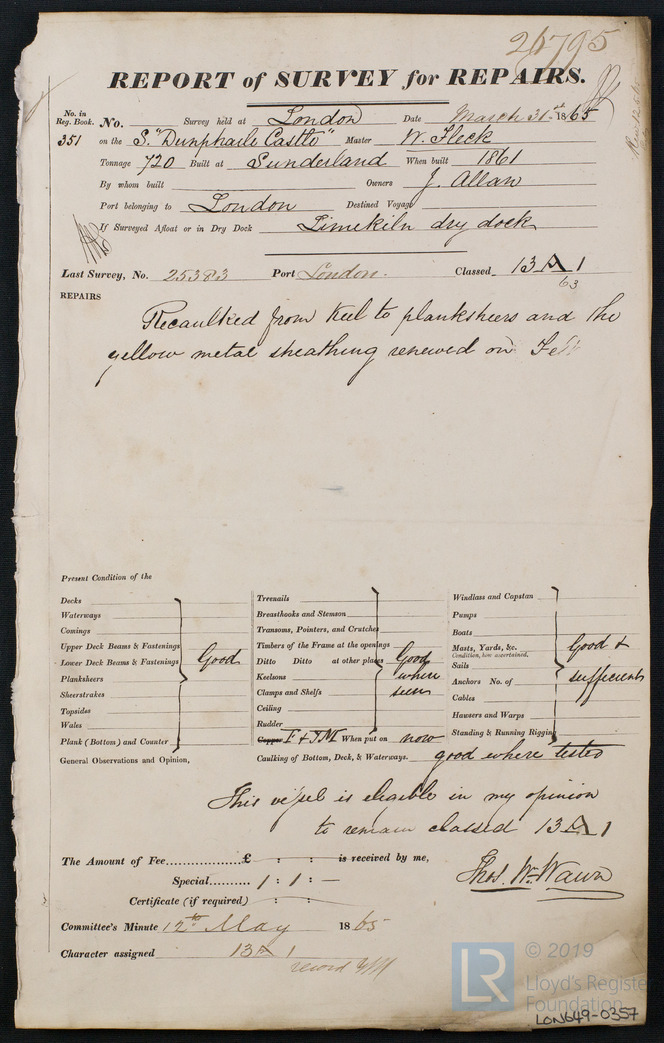 26795
REPORT of SURVEY for REPAIRS.
No. in Reg. Book. No. Survey held at London Date March 31st 1865
351 on the S. "Dunphaile Castle" Master W. Fleck
Tonnage 720 Built at Sunderland When built 1861
By whom built Owners J. Allan
Port belonging to London Destined Voyage
If Surveyed Afloat or in Dry Dock Limekiln dry dock
Last Survey, No. 25383 Port London. Classed 13 A 1
63
REPAIRS
Recaulked from Keel to planksheers and the
yellow metal sheathing renewed on Felt
Present Condition of the
Decks
Waterways
Comings
Upper Deck Beams & Fastenings
Lower Deck Beams & Fastenings
Planksheers
Sheerstrakes
Topsides
Wales
Plank (Bottom) and Counter
Good
General Observations and Opinion,
Treenails
Breasthooks and Stemson
Transoms, Pointers, and Crutches
Timbers of the Frame at the openings
Ditto Ditto at other places
Keelsons
Clamps and Shelfs
Ceiling
Rudder
Good where seen
Copper F & YM When put on now
Caulking of Bottom, Deck, & Waterways. good where tested
Windlass and Capstan
Pumps
Boats
Masts, Yards, &c.
Condition, how ascertained.
Sails
Anchors No. of
Cables
Hawsers and Warps
Standing & Running Rigging
Good & sufficient
This vessel is eligible in my opinion
to remain classed 13 A 1
The Amount of Fee................£ : : is received by me,
Special.......... 1 : 1 : —
Certificate (if required) : :
Thos. Wm. Wawn
Committee's Minute 12th May 1865
Character assigned 13 A 1
record YM
LR © 2019
Lloyd's Register
Foundation
LON649-0357